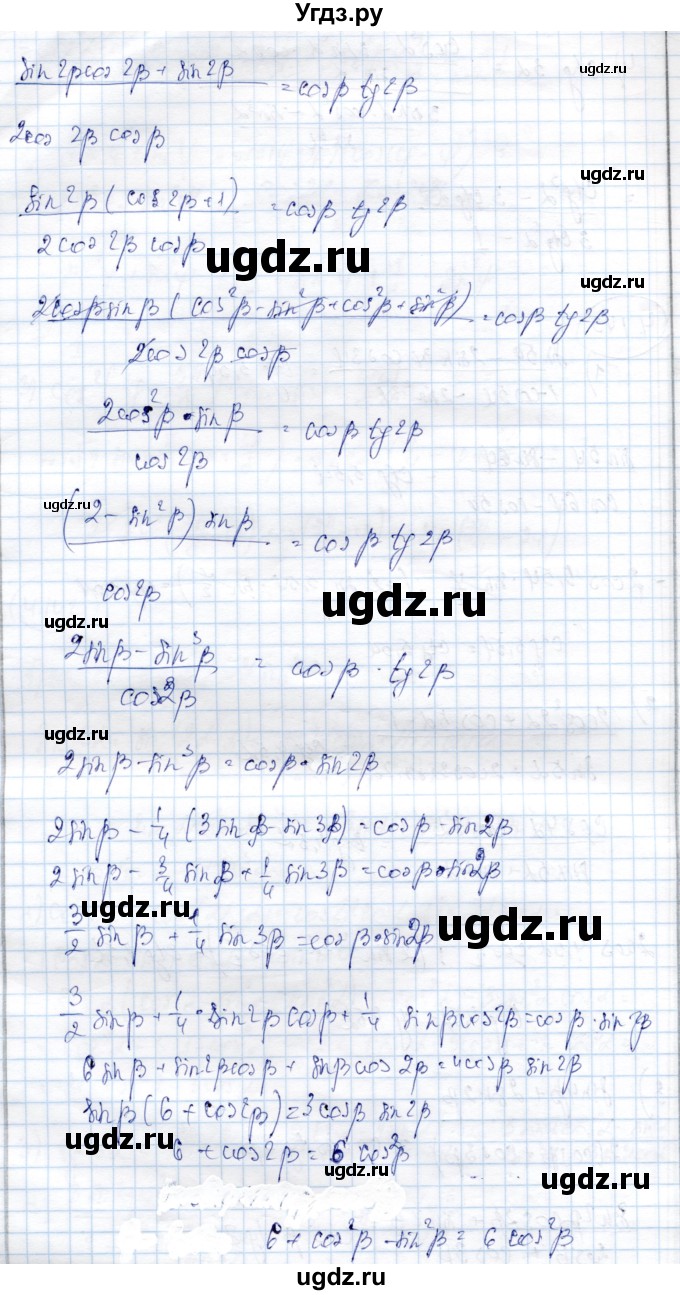 Угдз.ру
sin 2β cos 2β + sin 2β / 2cos 2β cos β = cos β tg 2β
ugdz.ru
ugdz.ru
sin 2β (cos 2β + 1) / 2cos 2β cos β = cos β tg 2β
ugdz.ru
2cosβ sinβ (cos²β - sin²β + cos²β + sin²β) / 2cos 2β cos β = cos β tg 2β
2cos²β · sin β / cos 2β = cos β tg 2β
ugdz.ru
ugdz.ru
(2 - sin²β) sin β / cos 2β = cos β tg 2β
ugdz.ru
ugdz.ru
2sin β - sin³β / cos 2β = cos β · tg 2β
ugdz.ru
2sin β - sin³β = cos β · sin 2β
2sin β - 1/4 (3sin β - sin 3β) = cos β · sin 2β
2 sin β - 3/4 sin β + 1/4 sin 3β = cos β · sin 2β
ugdz.ru
3/2 sin β + 1/4 sin 3β = cos β · sin 2β
ugdz.ru
3/2 sin β + 1/4 · sin 2β cos β + 1/4 sin β cos 2β = cos β · sin 2β
6 sin β + sin 2β cos β + sin β cos 2β = 4cos β sin 2β
sin β (6 + cos 2β) = 3 cos β sin 2β
ugdz.ru
6 + cos 2β = 6 cos²β
ugdz.ru
ugdz.ru
6 + cos²β - sin²β = 6 cos²β
ugdz.ru